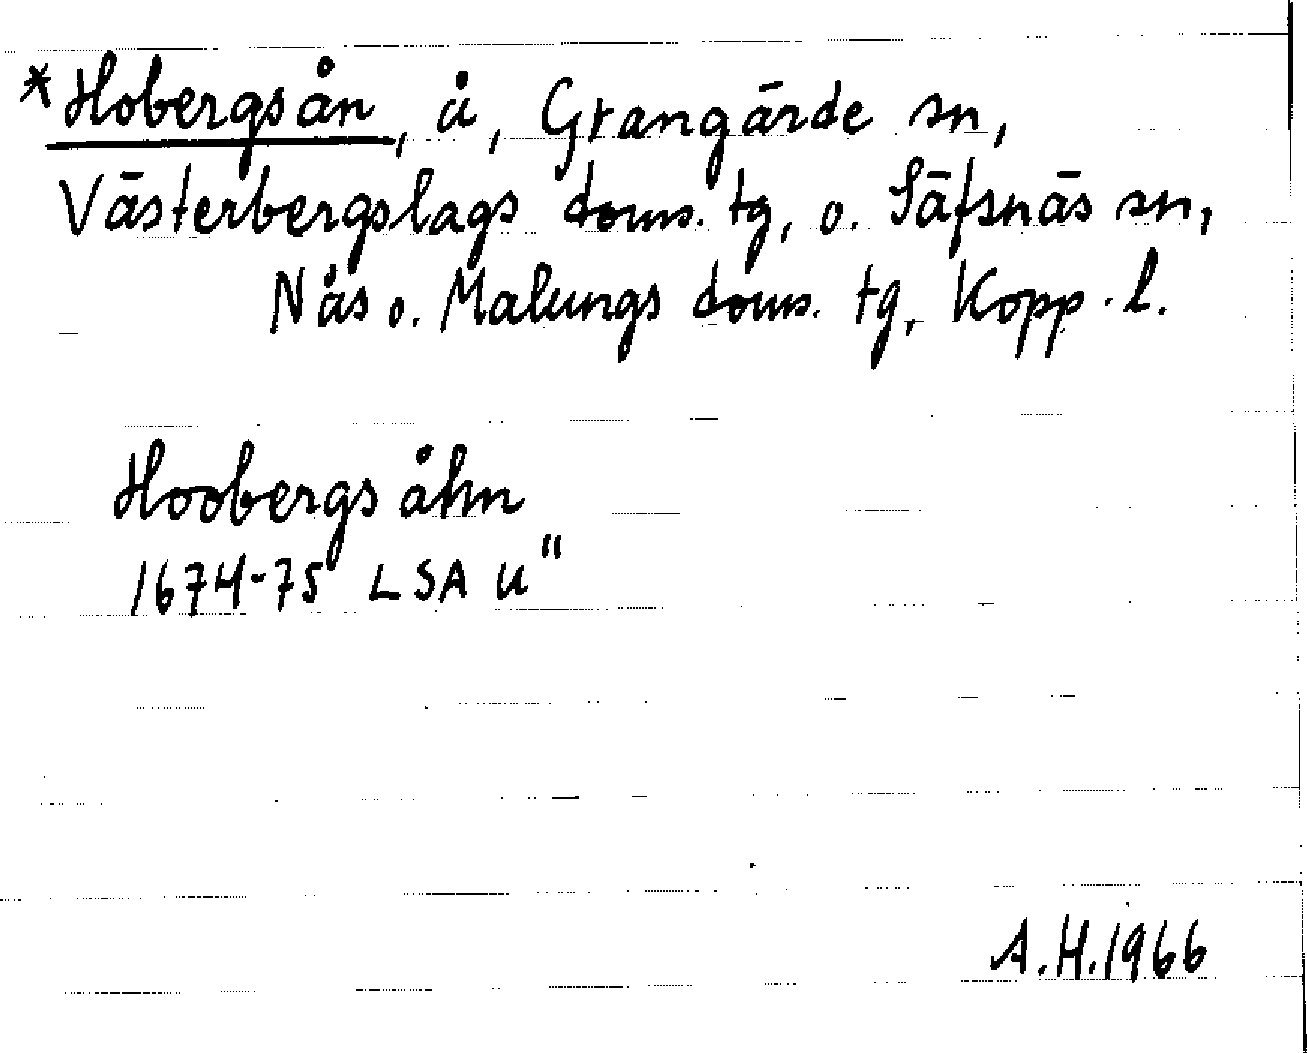 *Hobergsån, å, Grangärde sn,
Västerbergslags doms. tg, o. Säfsnäs sn,
Nås o. Malungs doms. tg, Kopp. l.
Hoobergs åhn
1674-75 LSA U"
A.H. 1966